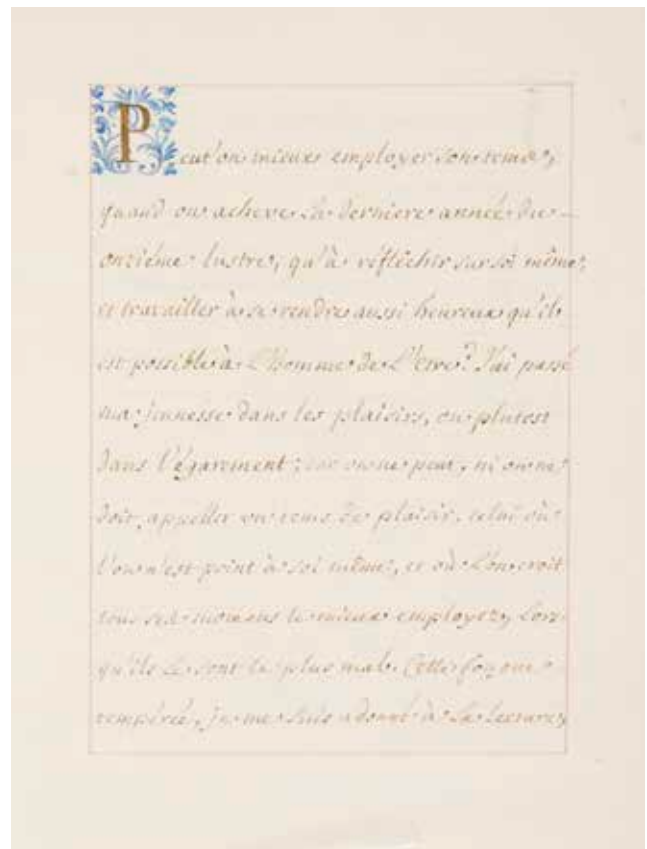 Peut'on mieux employer son tems,
quand on acheve la derniere année du
onziéme lustre, qu'à réflêchir sur soi même,
et travailler à se rendre aussi heureux qu'il
est possible à L'Homme de L'etre? J'ai passé
ma jeunesse dans les plaisirs, ou plutost
dans l'égarement; car on ne peut, ni on ne
doit, appeller un tems de plaisir, celui où
l'on n'est point à soi même, et où L'on croit
tous ses momens le mieux employez, Lors
qu'ils Le sont le plus mal. Cette
tempérée, je me suis adonné à La lecture,